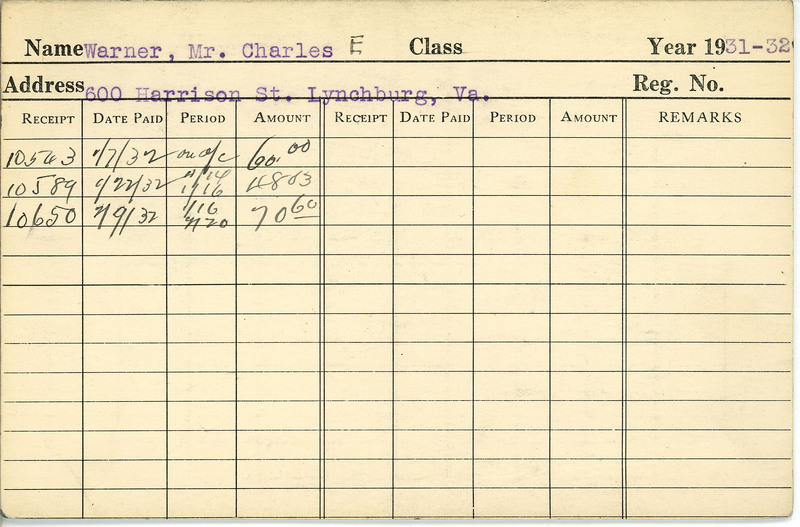 Name Warner, Mr. Charles E Class Year 1931-32
Address 600 Harrison St. Lynchburg, Va. Reg. No.
RECEIPT DATE PAID PERIOD AMOUNT RECEIPT DATE PAID PERIOD AMOUNT REMARKS
10543 1/7/32 on a/c 60.00
10589 1/22/32 1/16 4803
10650 2/9/32 1/16 2/20 70 60